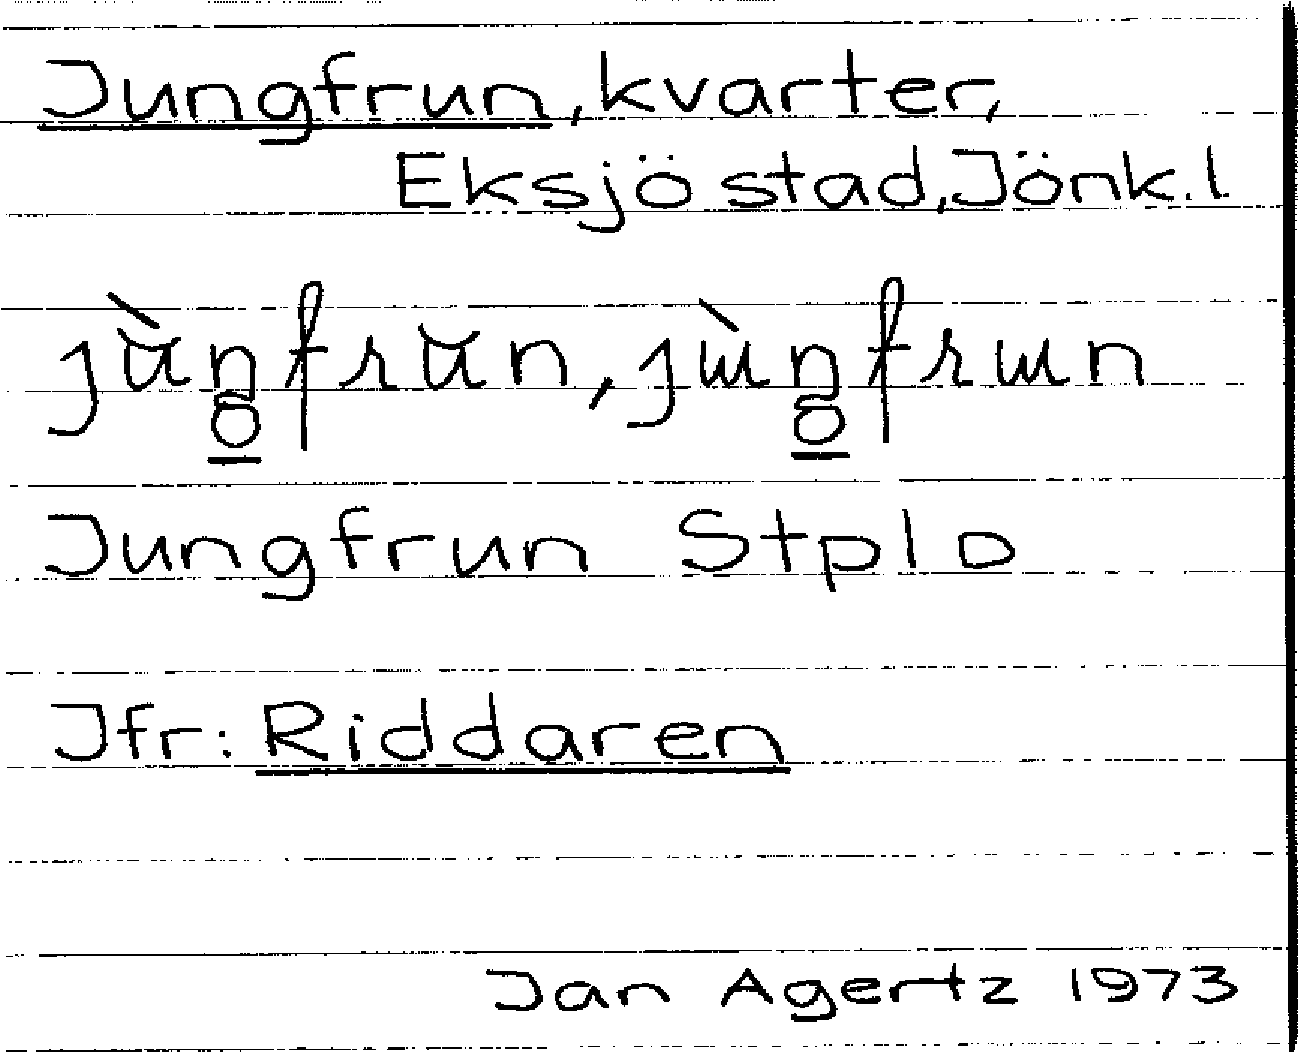 Jungfrun, kvarter,
Eksjö stad, Jönk. l.
Jungfrun Stplo
Jfr: Riddaren
Jan Agertz 1973